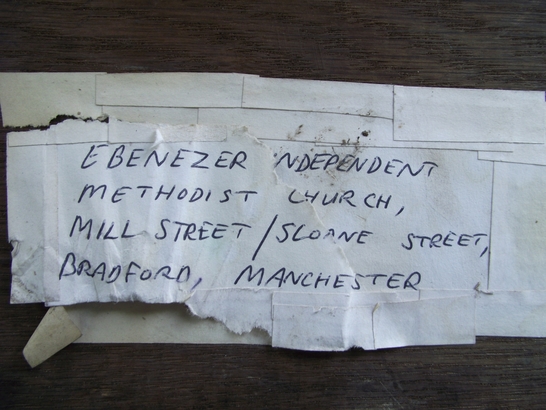 EBENEZER INDEPENDENT
METHODIST CHURCH,
MILL STREET / SLOANE STREET,
BRADFORD, MANCHESTER